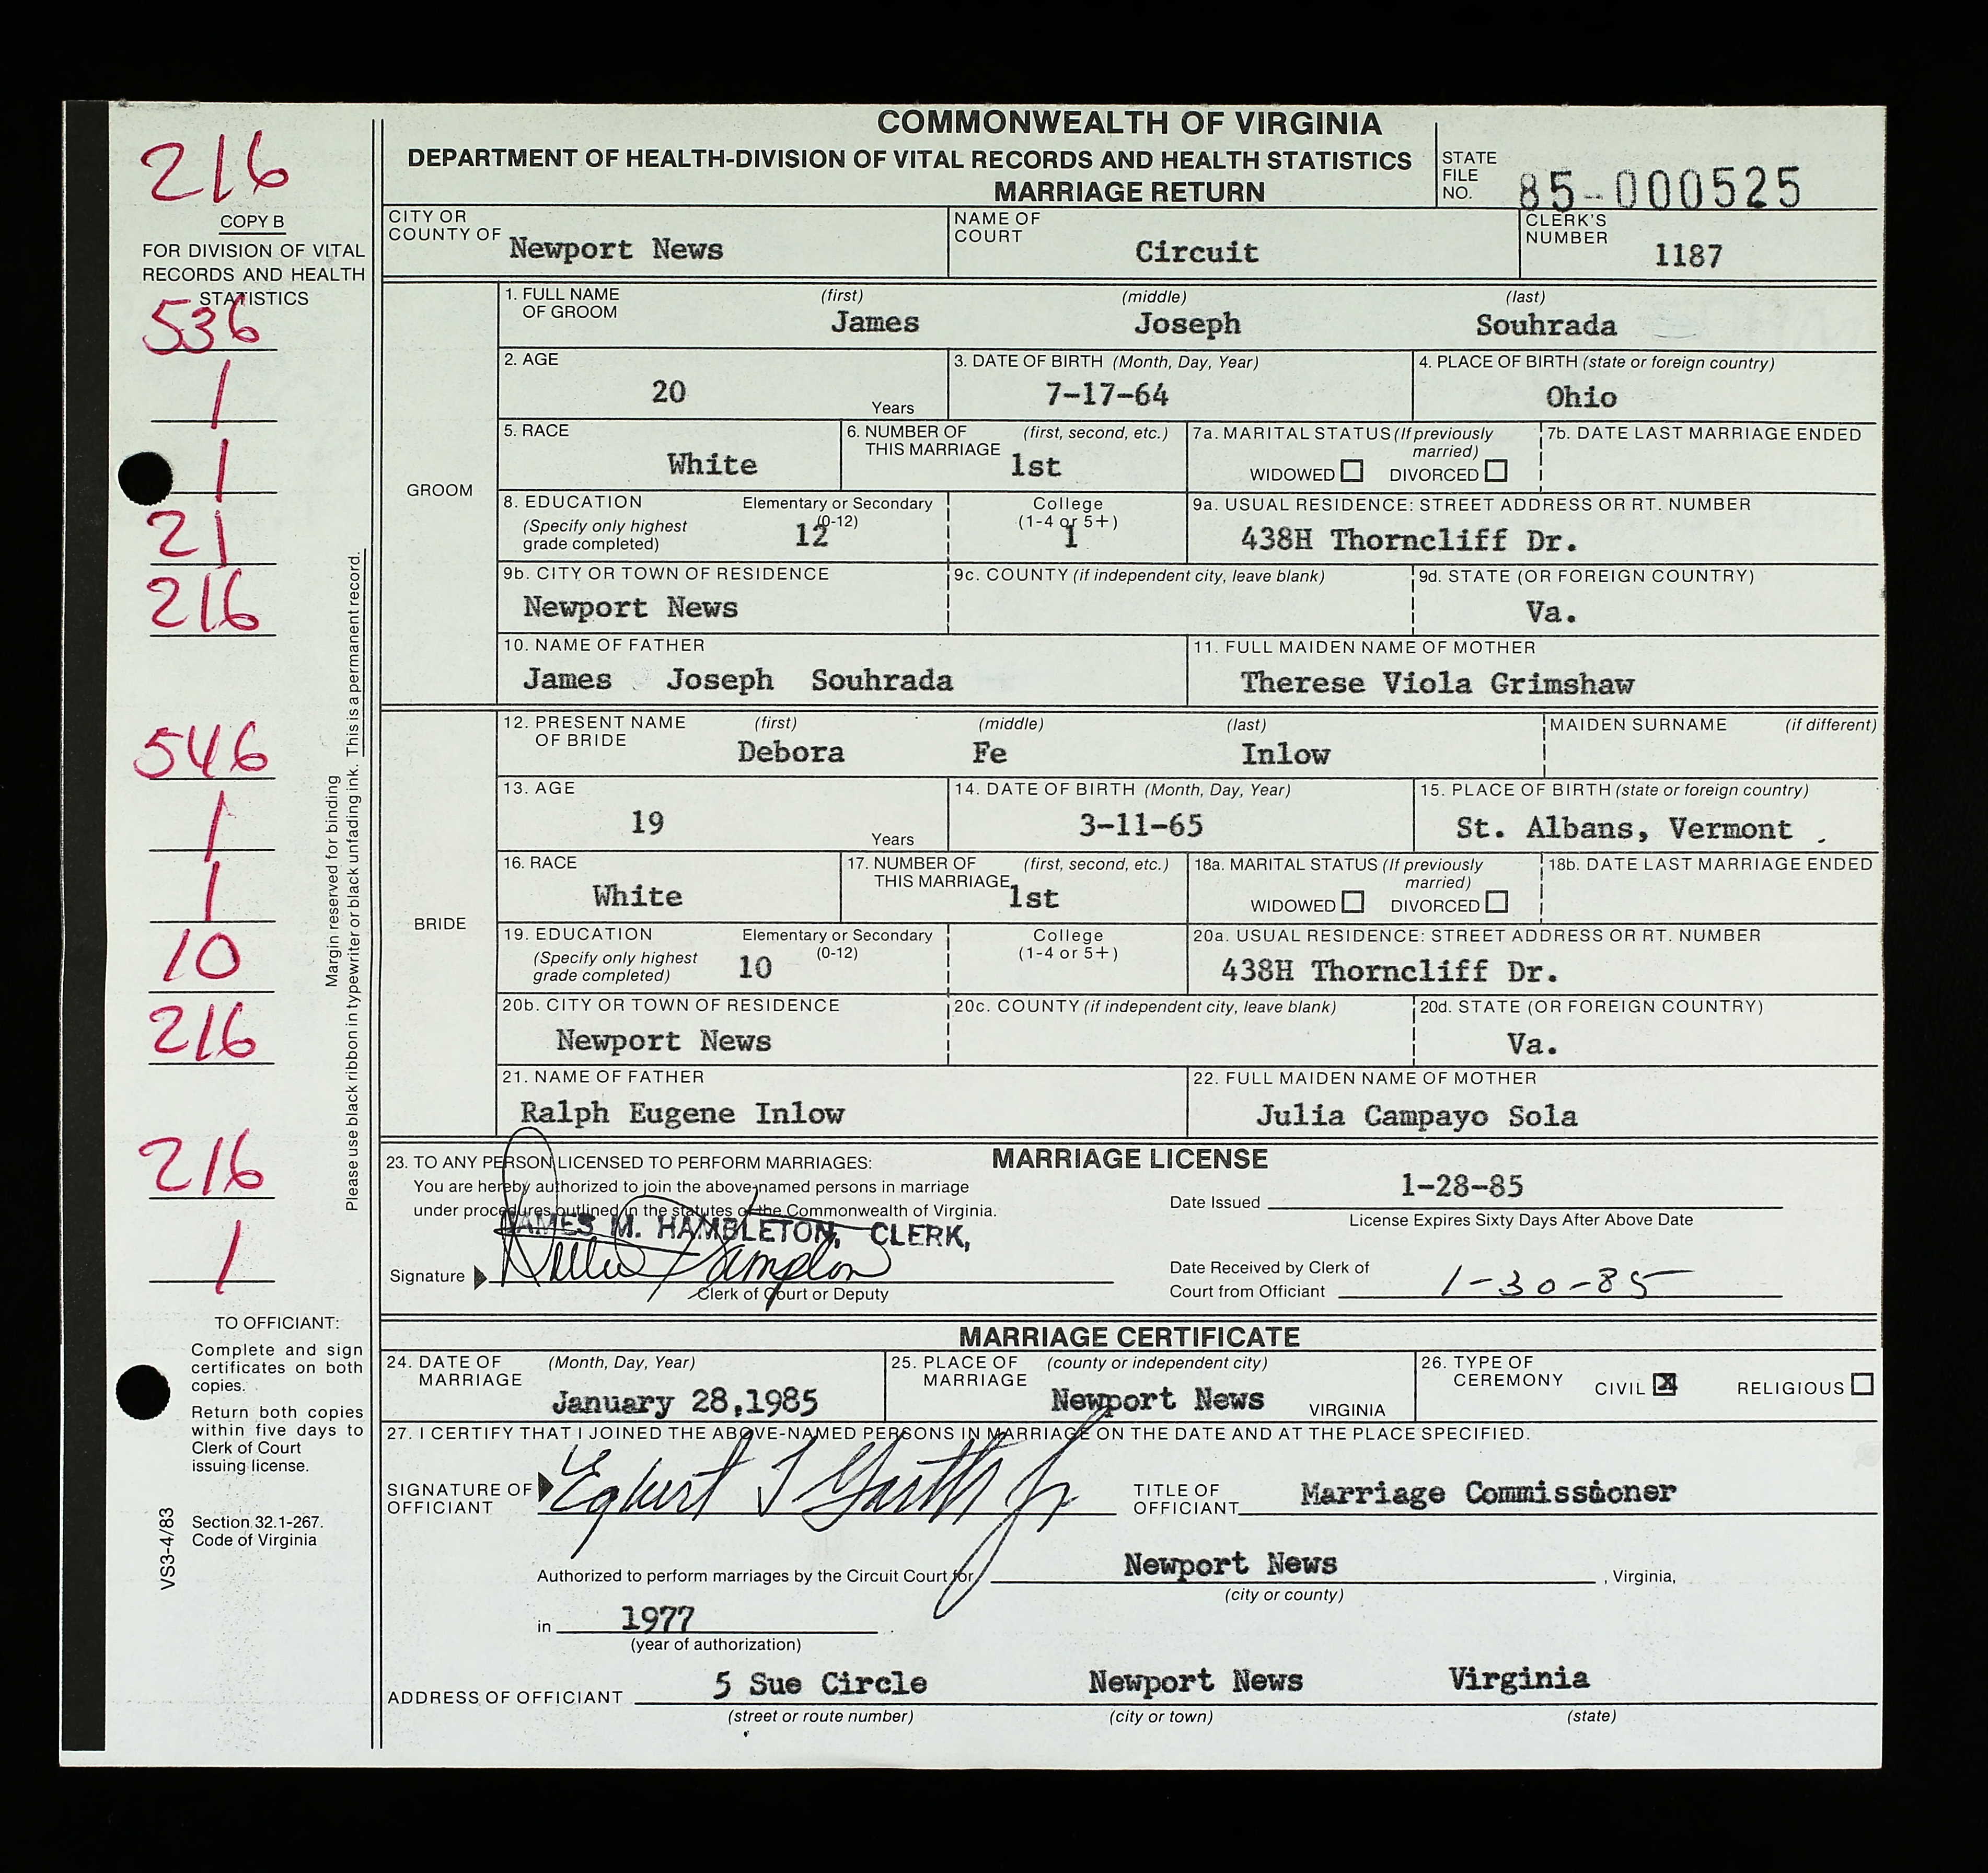 COMMONWEALTH OF VIRGINIA
DEPARTMENT OF HEALTH-DIVISION OF VITAL RECORDS AND HEALTH STATISTICS
MARRIAGE RETURN
STATE FILE NO. 85-000525
216
COPY B
FOR DIVISION OF VITAL
RECORDS AND HEALTH
STATISTICS
536
1
1
21
216
546
1
1
10
216
216
1
Margin reserved for binding
Please use black ribbon in typewriter or black unfading ink. This is a permanent record.
TO OFFICIANT:
Complete and sign
certificates on both
copies.
Return both copies
within five days to
Clerk of Court
issuing license.
Section 32.1-267.
Code of Virginia
VS3-4/83
CITY OR COUNTY OF Newport News
NAME OF COURT Circuit
CLERK'S NUMBER 1187
GROOM
1. FULL NAME OF GROOM (first) James (middle) Joseph (last) Souhrada
2. AGE 20 Years
3. DATE OF BIRTH (Month, Day, Year) 7-17-64
4. PLACE OF BIRTH (state or foreign country) Ohio
5. RACE White
6. NUMBER OF THIS MARRIAGE (first, second, etc.) 1st
7a. MARITAL STATUS (If previously married) WIDOWED DIVORCED
7b. DATE LAST MARRIAGE ENDED
8. EDUCATION (Specify only highest grade completed) Elementary or Secondary (0-12) 12 College (1-4 or 5+) 1
9a. USUAL RESIDENCE: STREET ADDRESS OR RT. NUMBER 438H Thorncliff Dr.
9b. CITY OR TOWN OF RESIDENCE Newport News
9c. COUNTY (if independent city, leave blank)
9d. STATE (OR FOREIGN COUNTRY) Va.
10. NAME OF FATHER James Joseph Souhrada
11. FULL MAIDEN NAME OF MOTHER Therese Viola Grimshaw
BRIDE
12. PRESENT NAME OF BRIDE (first) Debora (middle) Fe (last) Inlow
MAIDEN SURNAME (if different)
13. AGE 19 Years
14. DATE OF BIRTH (Month, Day, Year) 3-11-65
15. PLACE OF BIRTH (state or foreign country) St. Albans, Vermont
16. RACE White
17. NUMBER OF THIS MARRIAGE (first, second, etc.) 1st
18a. MARITAL STATUS (If previously married) WIDOWED DIVORCED
18b. DATE LAST MARRIAGE ENDED
19. EDUCATION (Specify only highest grade completed) Elementary or Secondary (0-12) 10 College (1-4 or 5+)
20a. USUAL RESIDENCE: STREET ADDRESS OR RT. NUMBER 438H Thorncliff Dr.
20b. CITY OR TOWN OF RESIDENCE Newport News
20c. COUNTY (if independent city, leave blank)
20d. STATE (OR FOREIGN COUNTRY) Va.
21. NAME OF FATHER Ralph Eugene Inlow
22. FULL MAIDEN NAME OF MOTHER Julia Campayo Sola
MARRIAGE LICENSE
23. TO ANY PERSON LICENSED TO PERFORM MARRIAGES:
You are hereby authorized to join the above-named persons in marriage
under procedures outlined in the statutes of the Commonwealth of Virginia.
JAMES M. HAMBLETON, CLERK,
Signature
Clerk of Court or Deputy
Date Issued 1-28-85
License Expires Sixty Days After Above Date
Date Received by Clerk of
Court from Officiant 1-30-85
MARRIAGE CERTIFICATE
24. DATE OF MARRIAGE (Month, Day, Year) January 28,1985
25. PLACE OF MARRIAGE (county or independent city) Newport News VIRGINIA
26. TYPE OF CEREMONY CIVIL X RELIGIOUS
27. I CERTIFY THAT I JOINED THE ABOVE-NAMED PERSONS IN MARRIAGE ON THE DATE AND AT THE PLACE SPECIFIED.
SIGNATURE OF OFFICIANT Egbert Jr
TITLE OF OFFICIANT Marriage Commissioner
Authorized to perform marriages by the Circuit Court for Newport News , Virginia,
(city or county)
in 1977
(year of authorization)
ADDRESS OF OFFICIANT 5 Sue Circle Newport News Virginia
(street or route number) (city or town) (state)